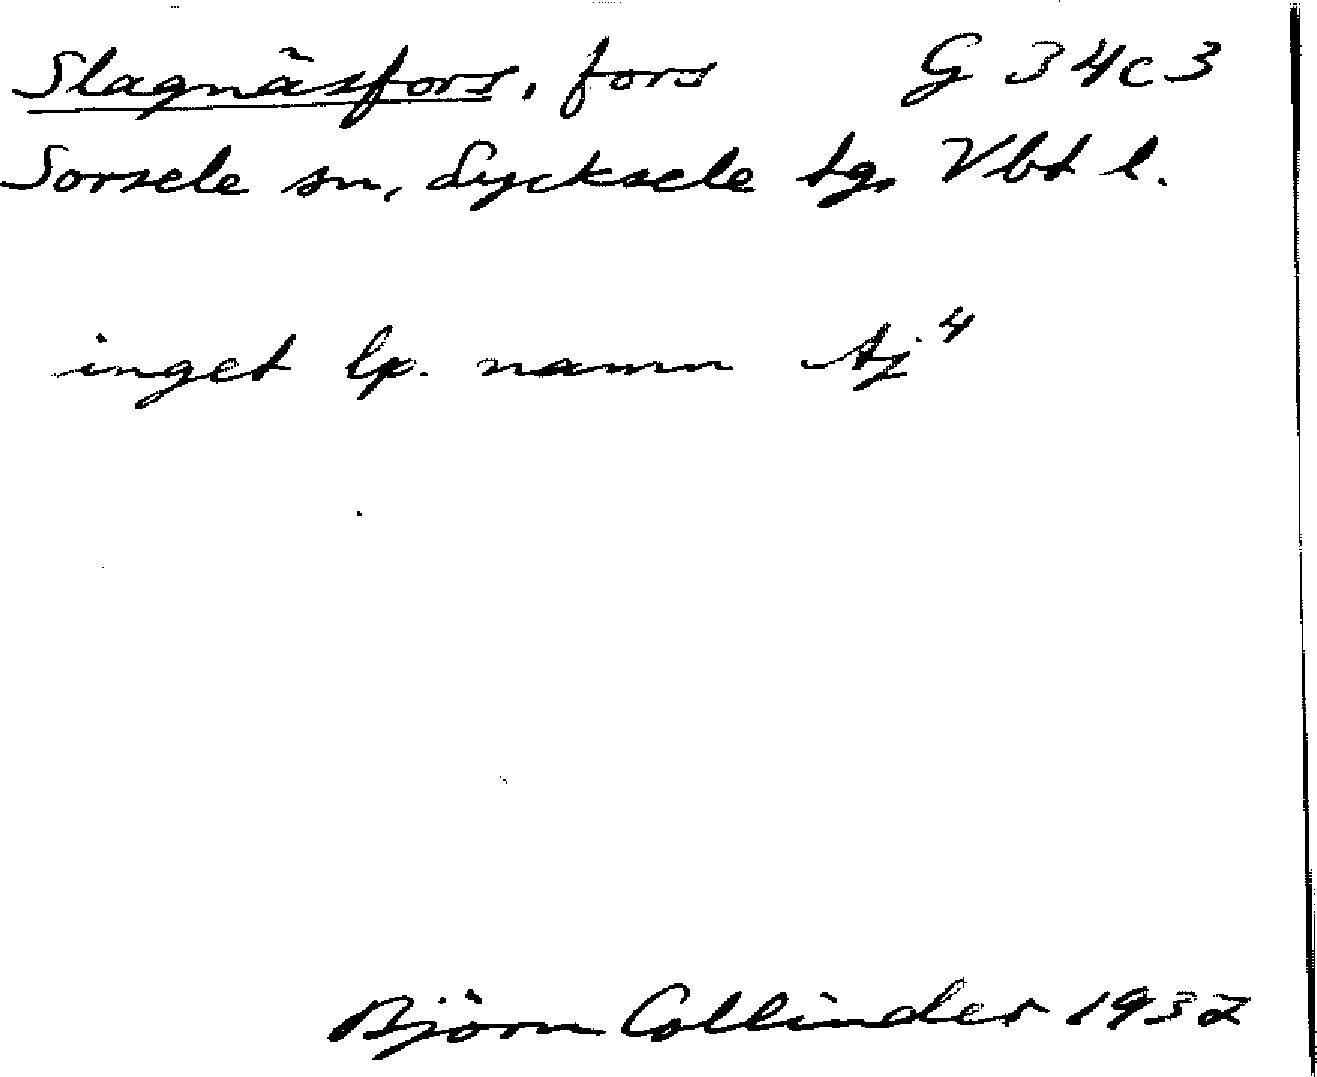 Slagnäsfors, fors G 34c3
Sorsele sn, Lycksele tg, Vbt l.
inget lp. namn Aj⁴
Björn Collinder 1932